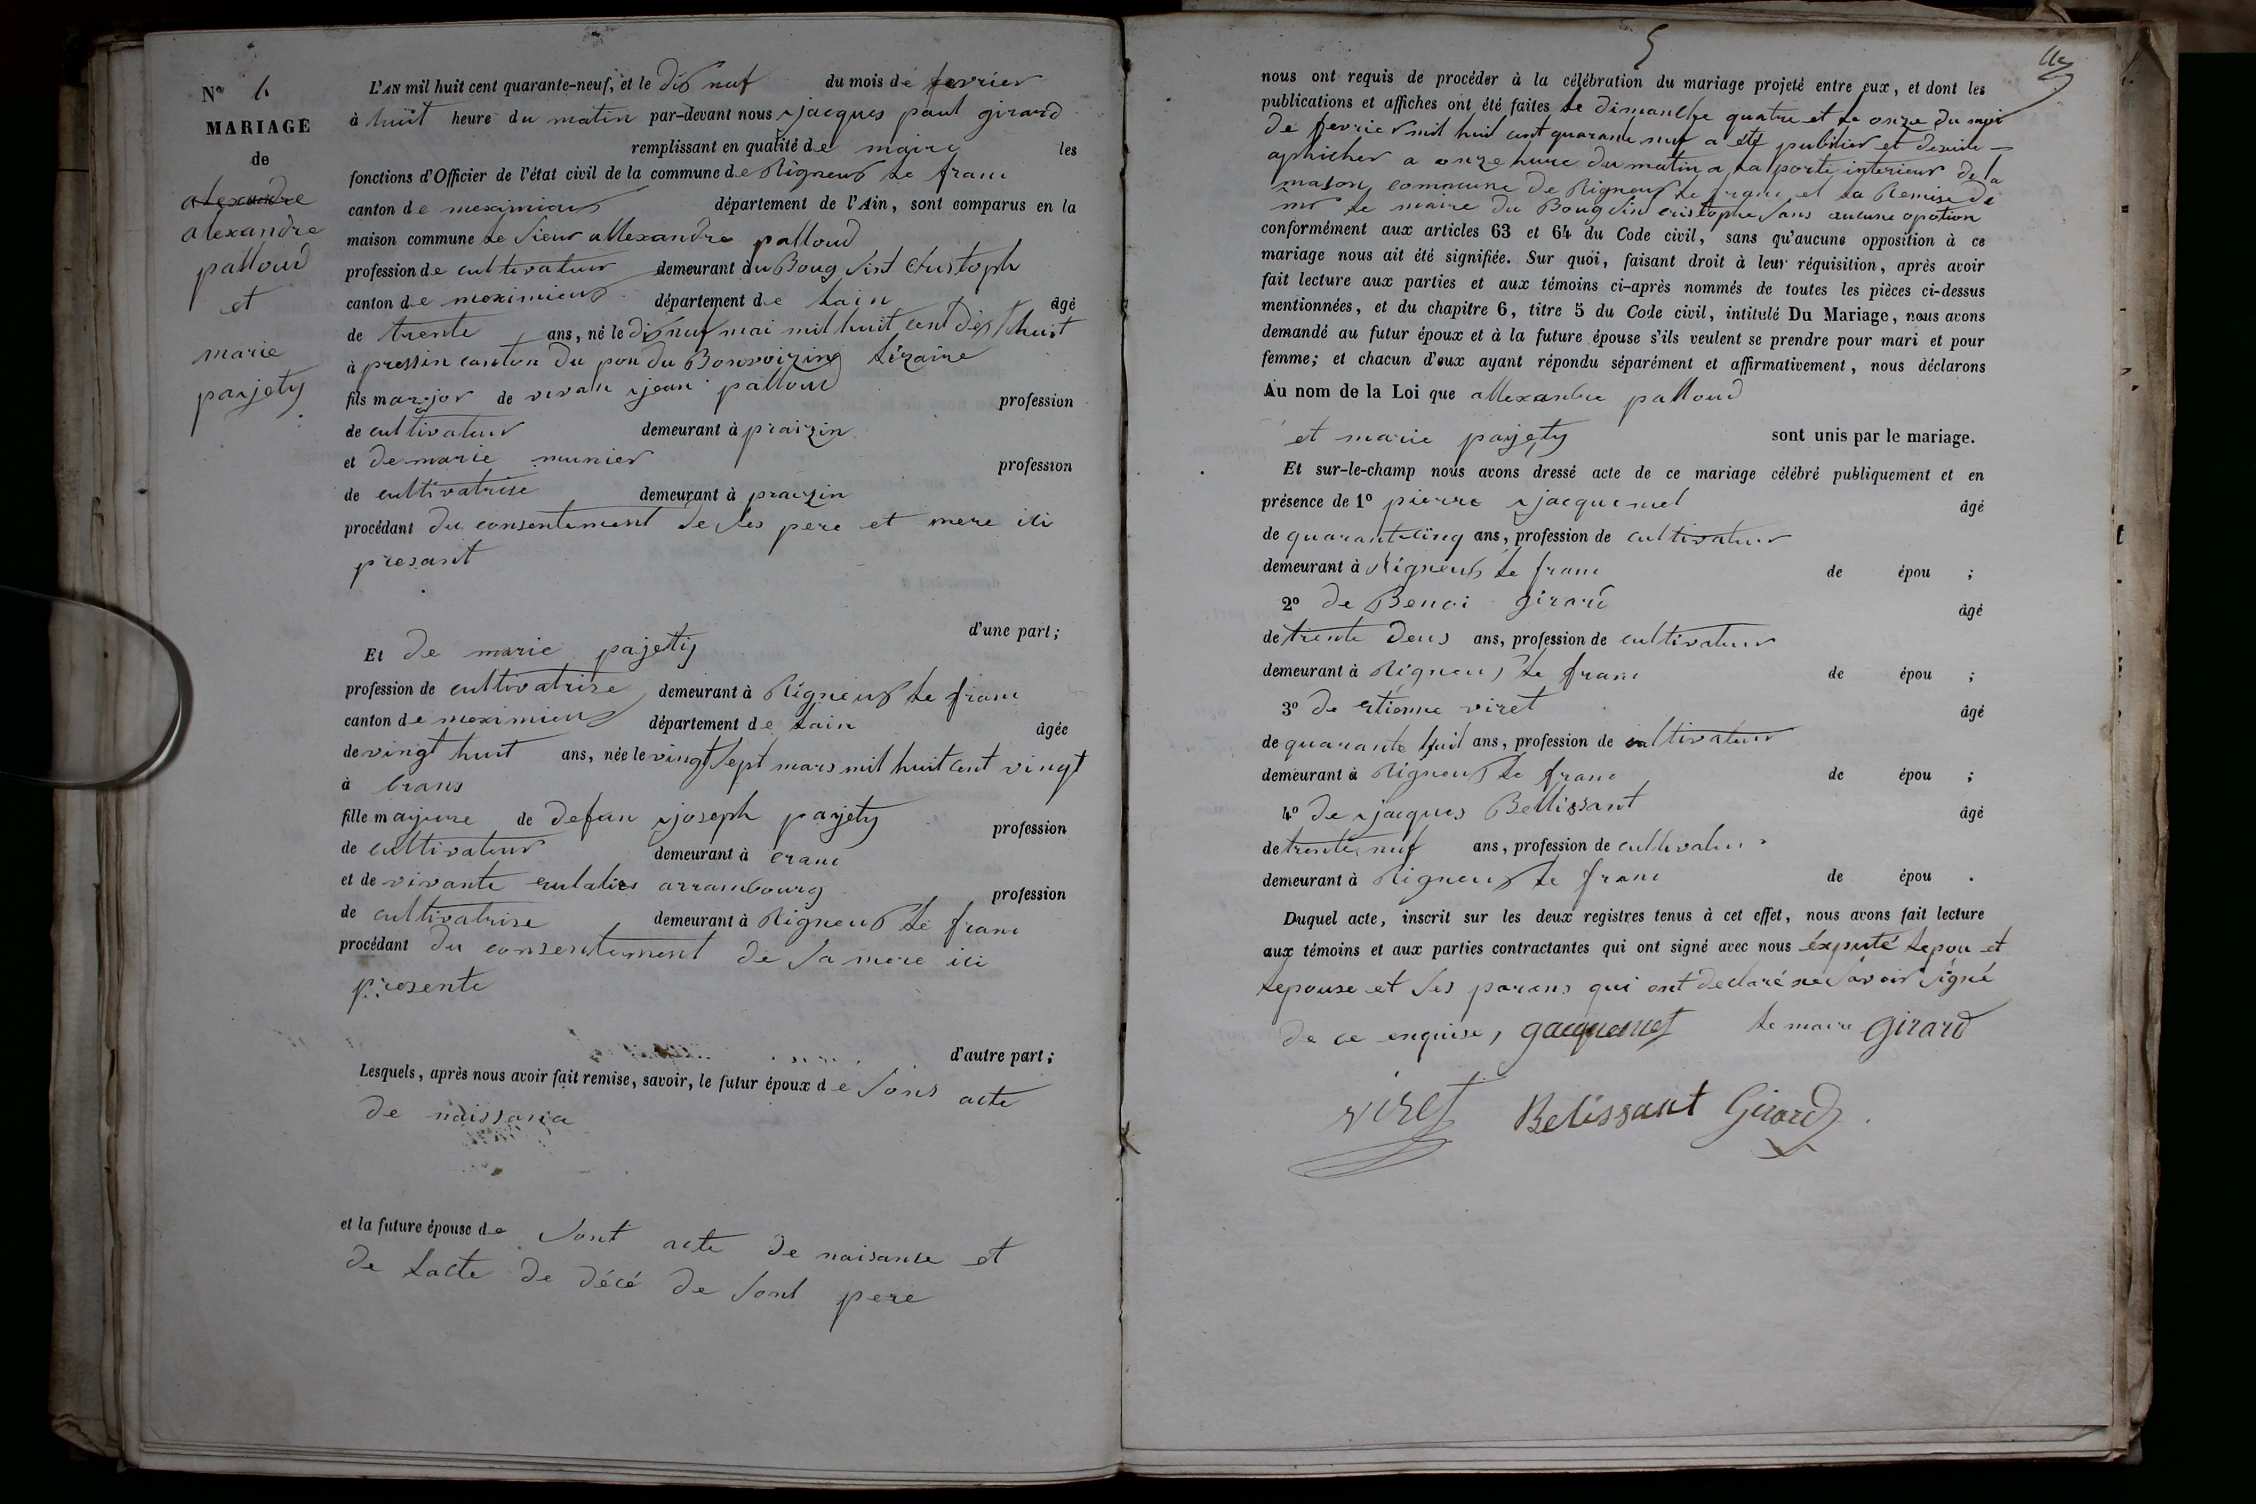 Nº 6
MARIAGE
de
alexandre
alexandre
palloud
et
marie
payjety
L'AN mil huit cent quarante-neuf, et le dis neuf du mois de fevrier
à huit heure du matin par-devant nous jacques paul girard
remplissant en qualité de maire les
fonctions d'Officier de l'état civil de la commune de Rigneux le franc
canton de meximieux département de l'Ain, sont comparus en la
maison commune le sieur allexandre palloud
profession de cultivateur demeurant du Boug sint Christoph
canton de meximieux département de lain âgé
de trente ans, né le dis neuf mai mil huit cent dis huit
à pressin canton du pon du
fils major de vivan jean palloud profession
de cultivateur demeurant à praizin
et de marie munier profession
de cultivatrise demeurant à praizin
procédant du consentement de ses pere et mere ici
presant
d'une part;
Et de marie pajetty
profession de cultivatrise demeurant à Rigneux le franc
canton de meximieux département de lain âgée
de vingt huit ans, née le vingt sept mars mil huit cent vingt
à crans
fille majure de defun joseph payjety profession
de cultivateur demeurant à cranc
et de vivante arrambourg profession
de cultivatrise demeurant à Rigneux le franc
procédant du consentement de sa mere ici
presente
d'autre part;
Lesquels, après nous avoir fait remise, savoir, le futur époux de sons acte
de naissanca
et la future épouse de sont acte de naisance et
de lacte de décé de sont pere
5
nous ont requis de procéder à la célébration du mariage projeté entre eux, et dont les
publications et affiches ont été faites le dimanche quatre et le onze du mois
de fevrier mil huit cent quarante neuf a été publier et
aphicher a onze hure du matin a la porte interieur de la
mason commune de Rigneux le franc et la Remise de
mr le maire du Boug sin cristophe sans aucune opotion
conformément aux articles 63 et 64 du Code civil, sans qu'aucune opposition à ce
mariage nous ait été signifiée. Sur quoi, faisant droit à leur réquisition, après avoir
fait lecture aux parties et aux témoins ci-après nommés de toutes les pièces ci-dessus
mentionnées, et du chapitre 6, titre 5 du Code civil, intitulé Du Mariage, nous avons
demandé au futur époux et à la future épouse s'ils veulent se prendre pour mari et pour
femme; et chacun d'eux ayant répondu séparément et affirmativement, nous déclarons
Au nom de la Loi que allexandre palloud
et marie payjety sont unis par le mariage.
Et sur-le-champ nous avons dressé acte de ce mariage célébré publiquement et en
présence de 1º pierre jacquemet âgé
de quarant cinq ans, profession de cultivateur
demeurant à Rigneux le franc de épou ;
2º de Benoi girard âgé
de trente deus ans, profession de cultivateur
demeurant à Rigneux le franc de épou ;
3º de etienne viret âgé
de quarante huit ans, profession de cultivateur
demeurant à Rigneux le franc de épou ;
4º de jacques Bellissant âgé
de trente neuf ans, profession de cultivateur
demeurant à Rigneux le franc de épou .
Duquel acte, inscrit sur les deux registres tenus à cet effet, nous avons fait lecture
aux témoins et aux parties contractantes qui ont signé avec nous éxputé lepou et
lepouse et ses parans qui ont declaré ne savoir signé
de ce enquise, gacquemet le maire girard
viret Belissant Girard